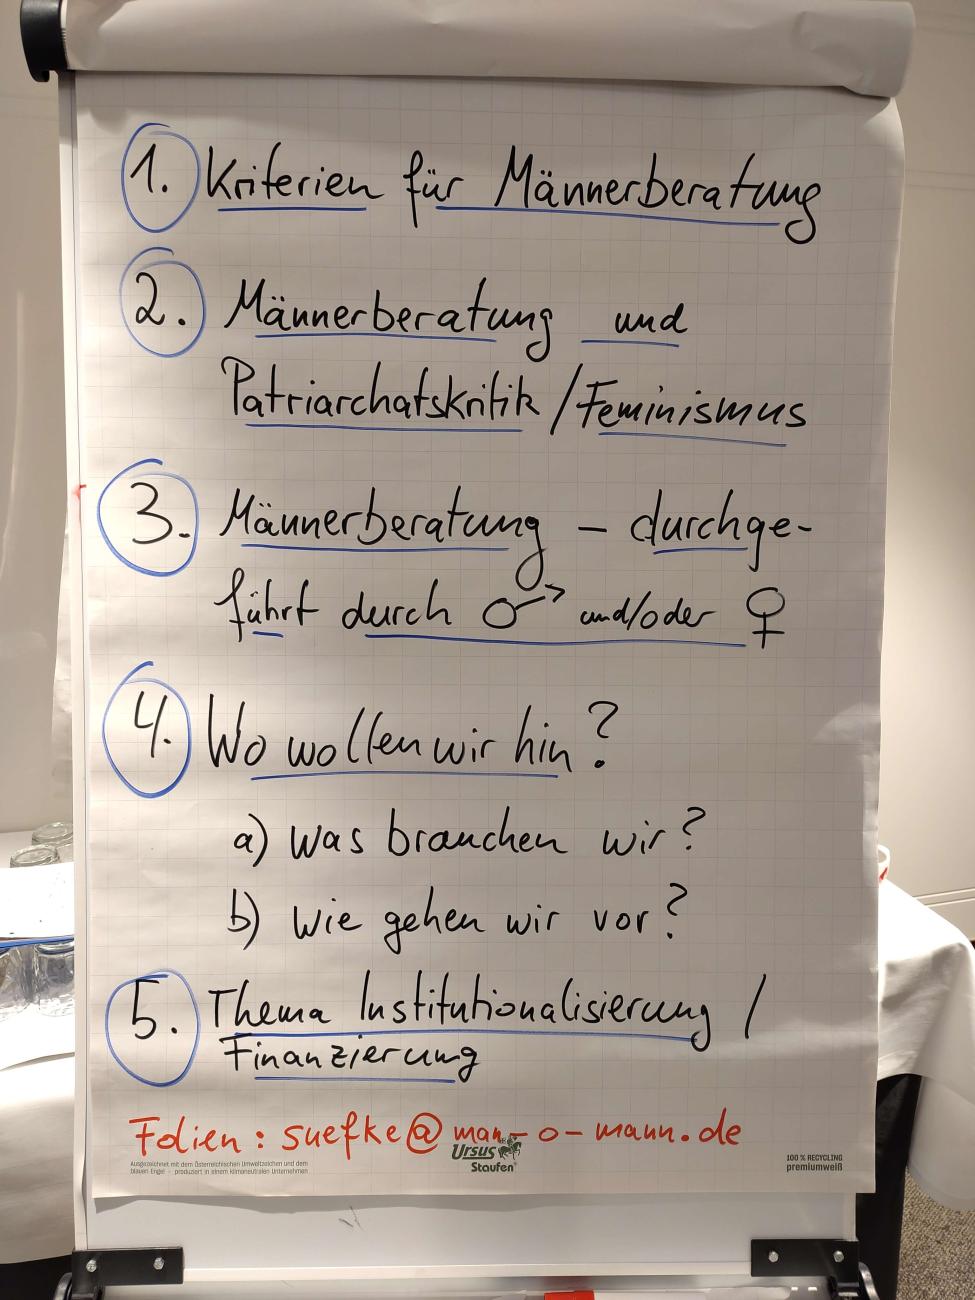 1. Kriterien für Männerberatung
2. Männerberatung und
Patriarchatskritik / Feminismus
3. Männerberatung – durchge-
führt durch ♂ und/oder ♀
4. Wo wollen wir hin?
a) Was brauchen wir?
b) Wie gehen wir vor?
5. Thema Institutionalisierung /
Finanzierung
Folien: suefke@man-o-mann.de
Ursus
Staufen
Ausgezeichnet mit dem Österreichischen Umweltzeichen und dem
blauen Engel - produziert in einem klimaneutralen Unternehmen
100 % RECYCLING
premiumweiß